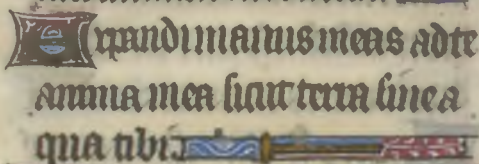 Expandi manus meas ad te
anima mea sicut terra sine a
qua tibi